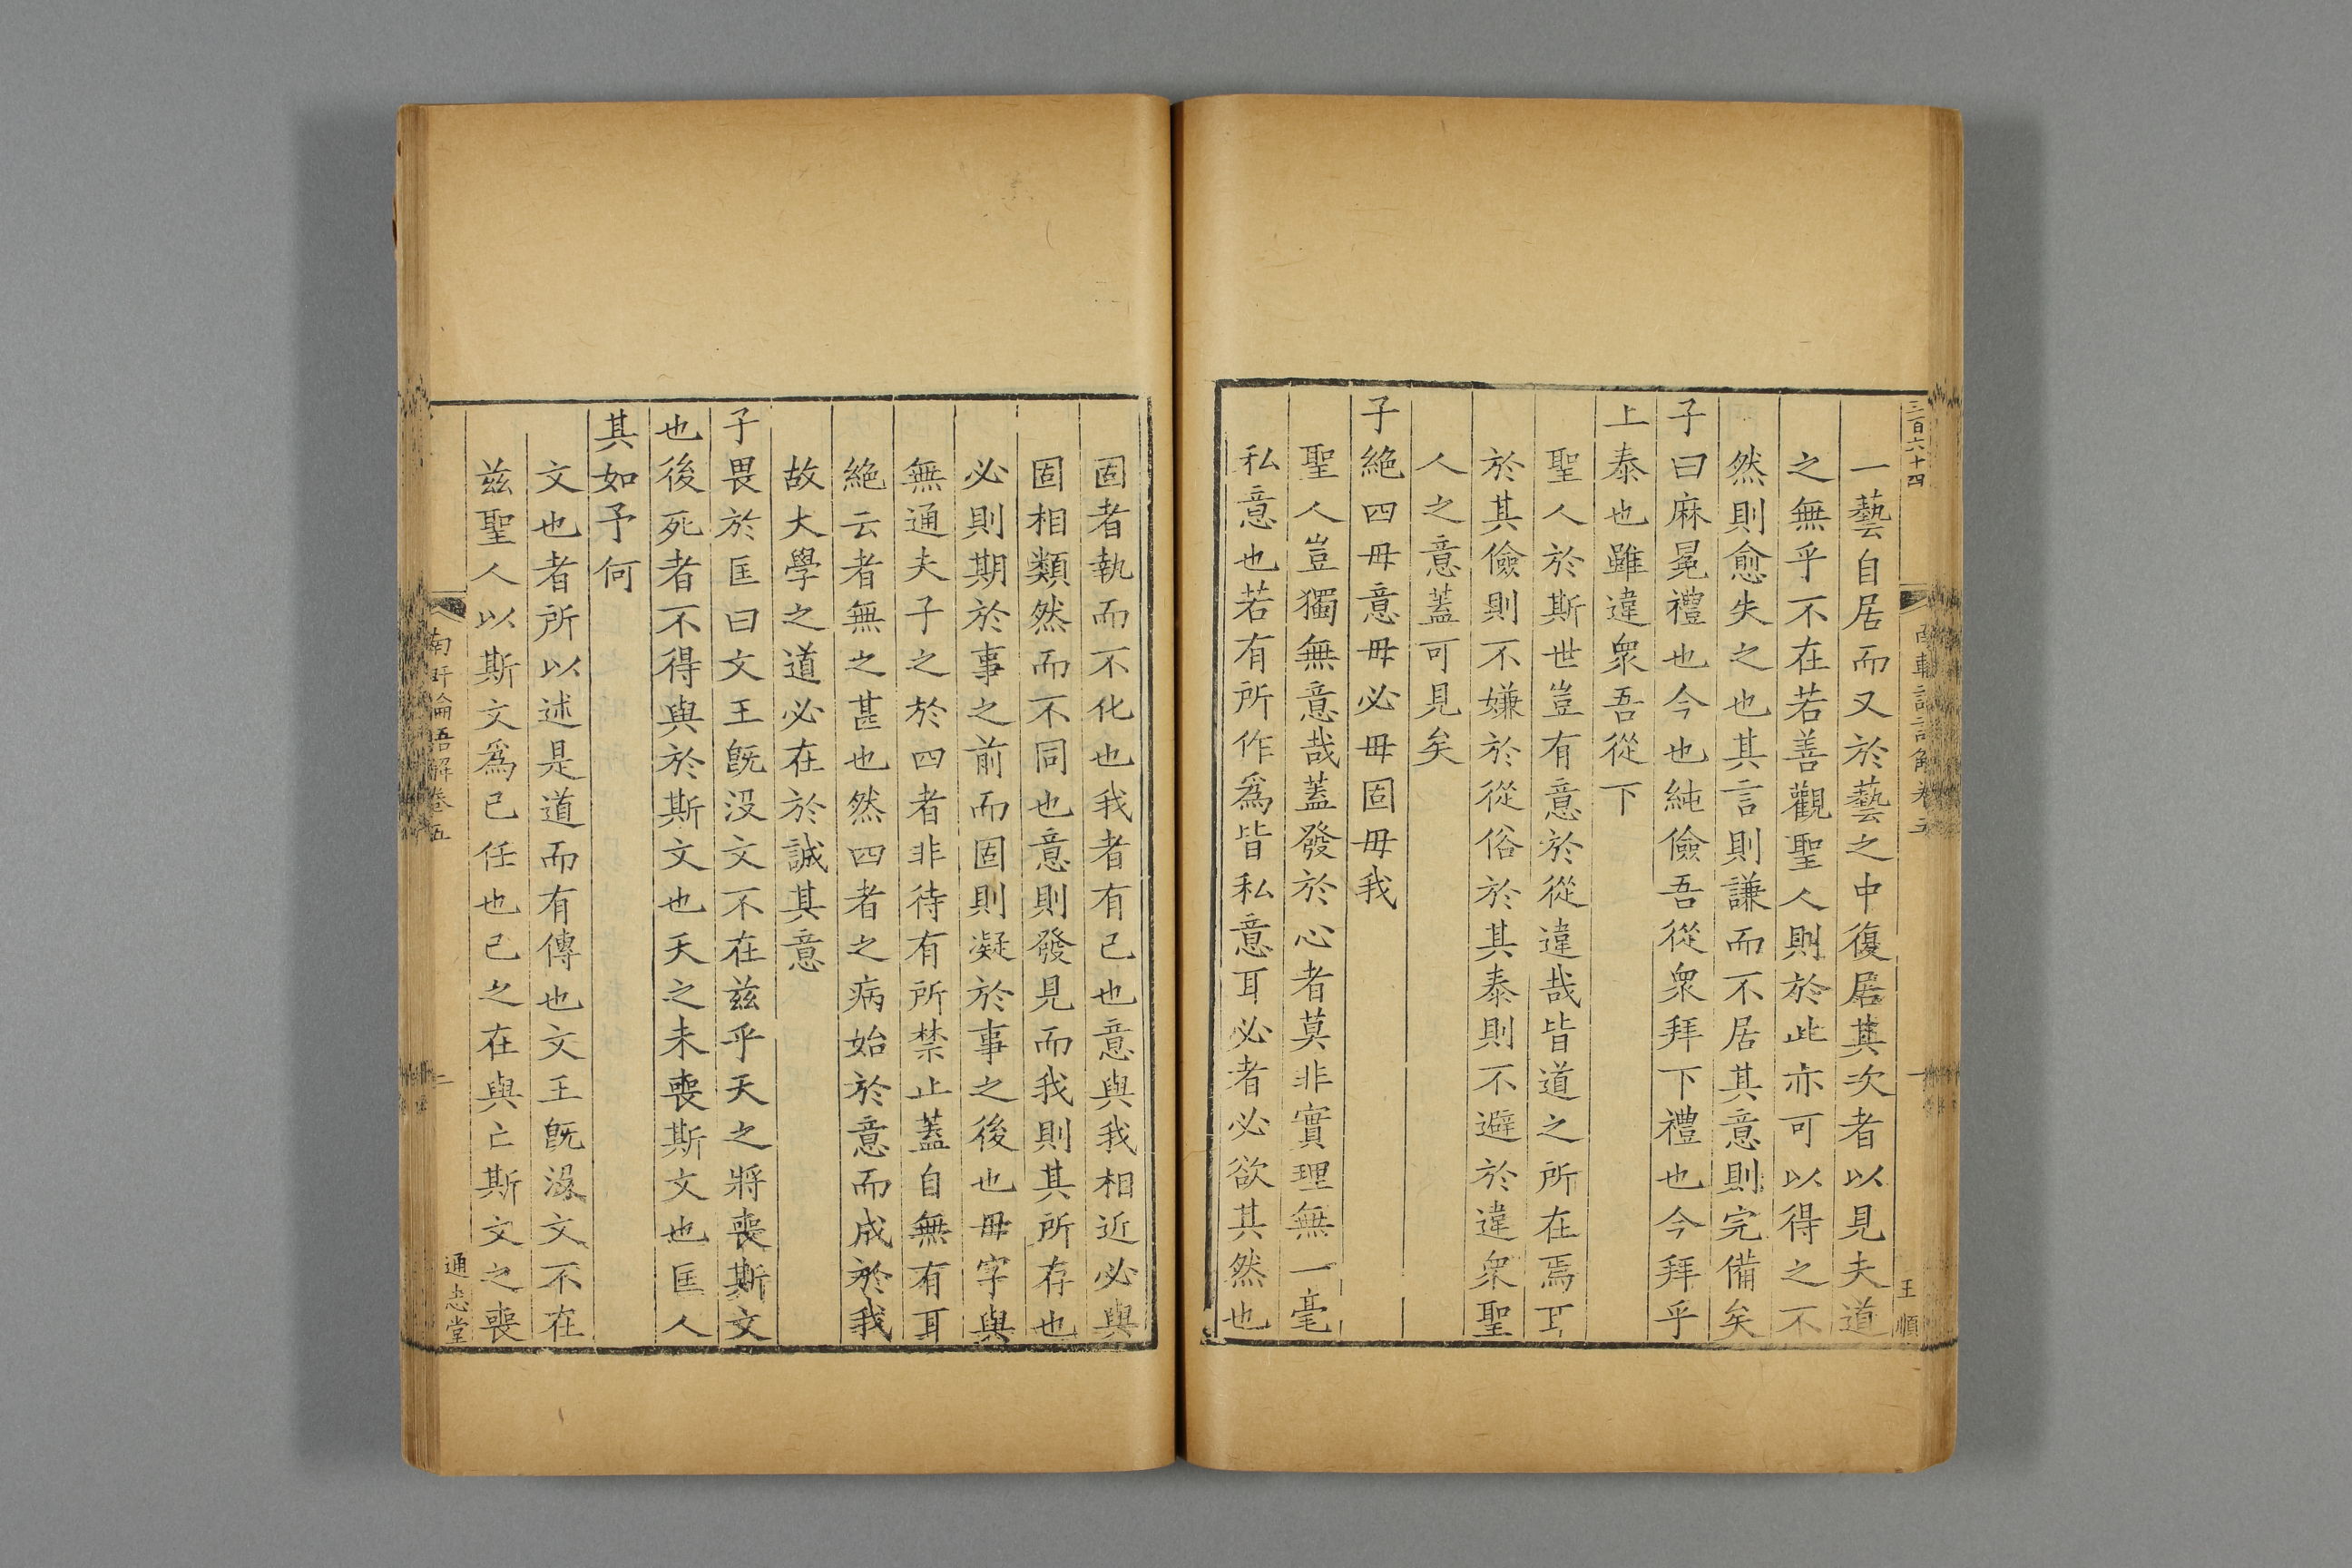 三百六十四
王順
一藝自居而又於藝之中復居其次者以見夫道
之無乎不在若善觀聖人則於此亦可以得之不
然則愈失之也其言則謙而不居其意則完備矣
子曰麻冕禮也今也純儉吾從衆拜下禮也今拜乎
上泰也雖違衆吾從下
聖人於斯世豈有意於從違哉皆道之所在焉耳
於其儉則不嫌於從俗於其泰則不避於違衆聖
人之意蓋可見矣
子絶四毋意毋必毋固毋我
聖人豈獨無意哉蓋發於心者莫非實理無一毫
私意也若有所作爲皆私意耳必者必欲其然也
固者執而不化也我者有己也意與我相近必與
固相類然而不同也意則發見而我則其所存也
必則期於事之前而固則凝於事之後也毋字與
無通夫子之於四者非待有所禁止蓋自無有耳
絶云者無之甚也然四者之病始於意而成於我
故大學之道必在於誠其意
子畏於匡曰文王旣沒文不在茲乎天之將喪斯文
也後死者不得與於斯文也天之未喪斯文也匡人
其如予何
文也者所以述是道而有傳也文王旣沒文不在
茲聖人以斯文爲己任也己之在與亡斯文之喪
南軒論語解卷五
二
通志堂